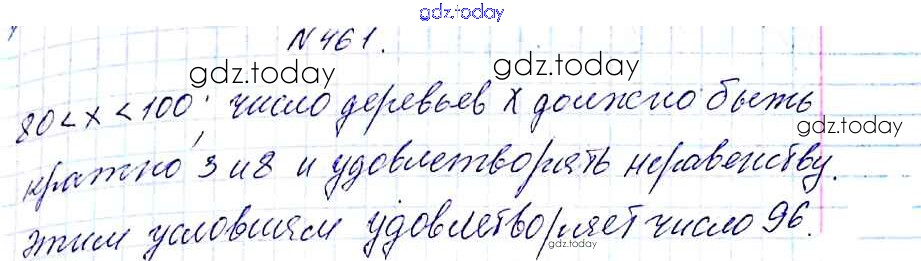 gdz.today
N 461.
gdz.today gdz.today
80 < x < 100; число деревьев x должно быть
gdz.today
кратно 3 и 8 и удовлетворять неравенству.
Этим условиям удовлетворяет число 96.
gdz.today